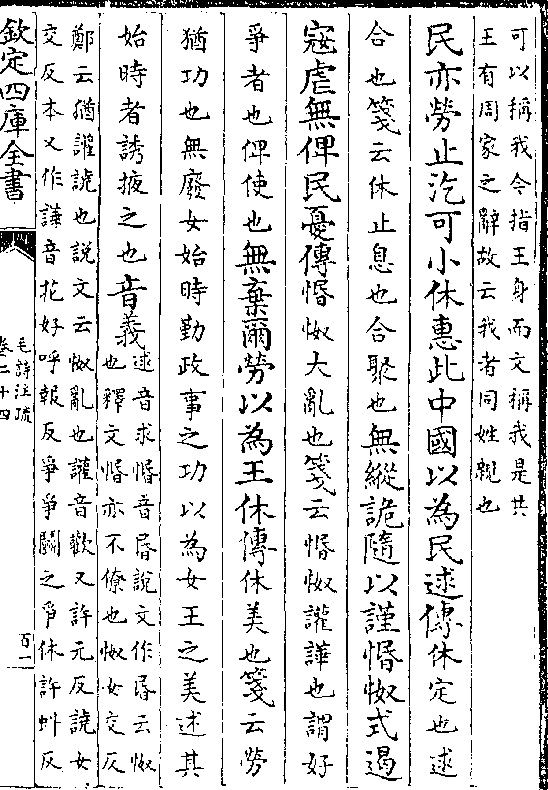 可以稱我今指王身而文稱我是共
王有周家之辭故云我者同姓親也
民亦勞止汔可小休惠此中國以為民逑傳休定也逑
合也箋云休止息也合聚也無縱詭隨以謹惽怓式遏
寇虐無俾民憂傳惽怓大亂也箋云惽怓讙譁也謂好
爭者也俾使也無棄爾勞以為王休傳休美也箋云勞
猶功也無廢女始時勤政事之功以為女王之美述其
始時者誘掖之也音義逑音求惽音昬說文作昬云怓
也釋文惽亦不僚也怓女交反
鄭云猶讙譊也說文云怓亂也讙音歡又許元反譊女
交反本又作譁音花好呼報反爭爭鬬之爭休許虯反
欽定四庫全書
毛詩注疏
卷二十四
百一